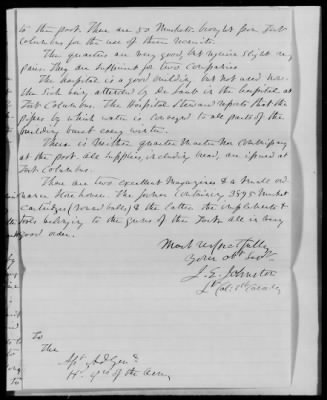 to the post. There are 50 Muskets brought from Fort
Columbus for the use of these recruits.
The quarters are very good, but require slight re-
pairs. They are sufficient for two Companies.
The hospital is a good building but not used now.
the Sick being attended by Dr in the hospital at
Fort Columbus. The Hospital Steward reports that the
pipes by which water is conveyed to all parts of the
building burst every winter.
There is Neither quarter Master nor Commissary
at the post. all supplies, including bread, are issued at
Fort Columbus.
There are two excellent Magazines & a small ord-
nance Store house. The former containing 3895 Musket
Cartridges (round balls) & the latter the implements &
tools belonging to the guns of the Fort all in very
good order.
Most respectfully
Your obt Servt
J. E. Johnston
Lt Col: 1st Cavalry
To
The
Adj Genl
Hd qrs of the Army